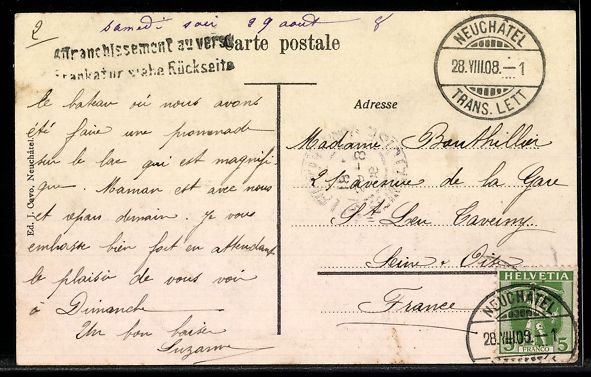 2 samedi soir 29 aout 8
Affranchissement au verso
Frankatur siehe Rückseite
Carte postale
NEUCHÂTEL
28.VIII.08.–1
TRANS. LETT
le bateau où nous avons
été faire une promenade
sur le lac qui est magnifi
que. Maman est avec nous
et après demain. je vous
embrasse bien fort en attendant
le plaisir de vous voir
à Dimanche
Un bon baiser
Suzanne
Ed. J. Cavo, Neuchâtel.
Adresse
Madame Bouthillier
avenue de la Gare
St Leu Taverny
Seine & Oise
France
HELVETIA
NEUCHÂTEL
28.VIII.08.–1
5 FRANCO 5